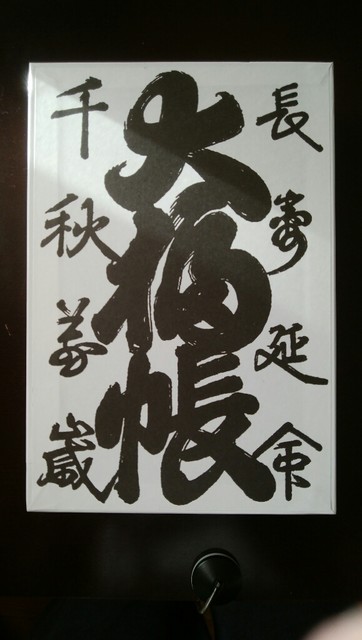 長寿延命
大福帳
千秋万歳